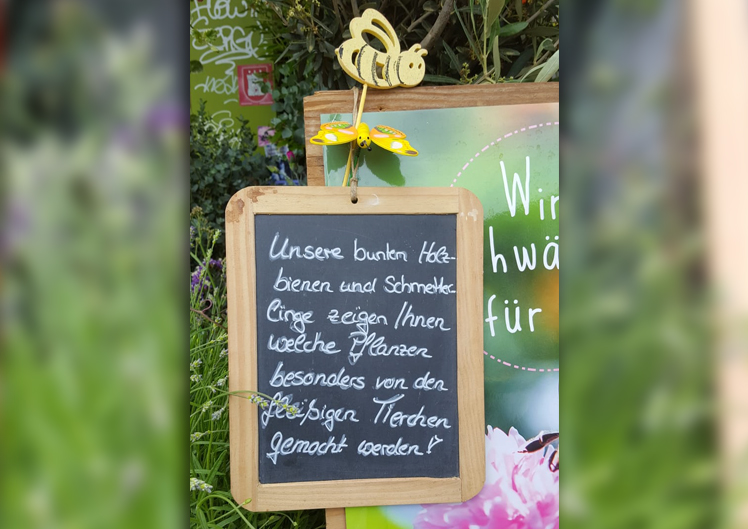 Unsere bunten Holz-
bienen und Schmetter-
linge zeigen Ihnen
welche Pflanzen
besonders von den
fleißigen Tierchen
gemocht werden!
Wir
hwä
für